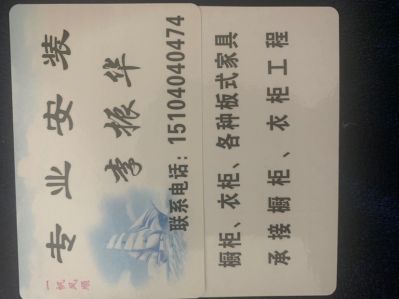 专业安装
李振华
联系电话：15104040474
一帆风顺
橱柜、衣柜、各种板式家具
承接橱柜、衣柜工程